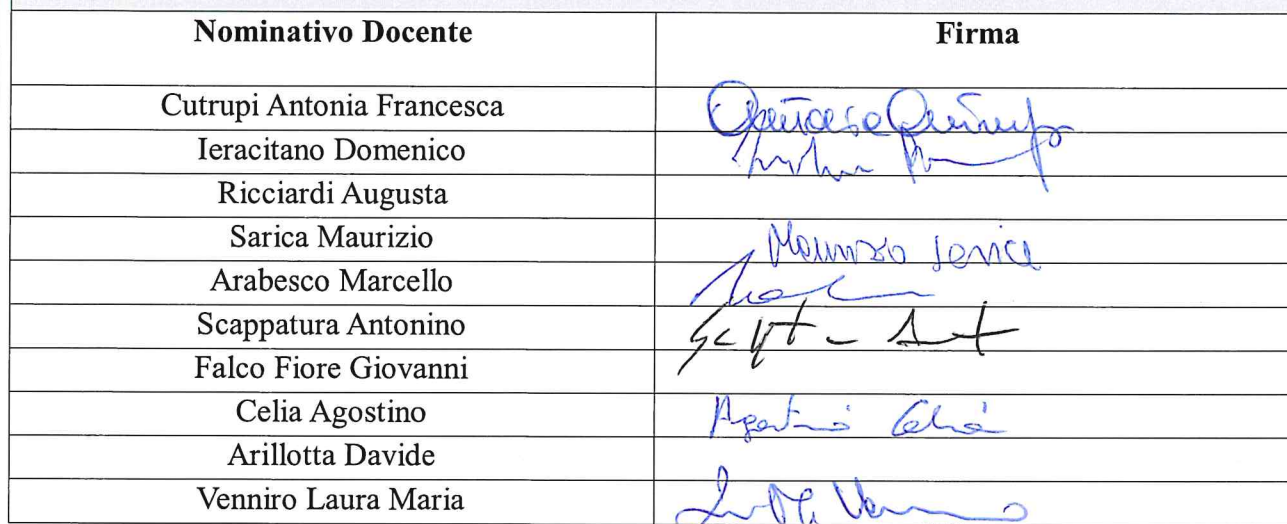 Nominativo Docente Firma
Cutrupi Antonia Francesca
Ieracitano Domenico
Ricciardi Augusta
Sarica Maurizio Maurizio Sarica
Arabesco Marcello
Scappatura Antonino
Falco Fiore Giovanni
Celia Agostino Agostino Celia
Arillotta Davide
Venniro Laura Maria